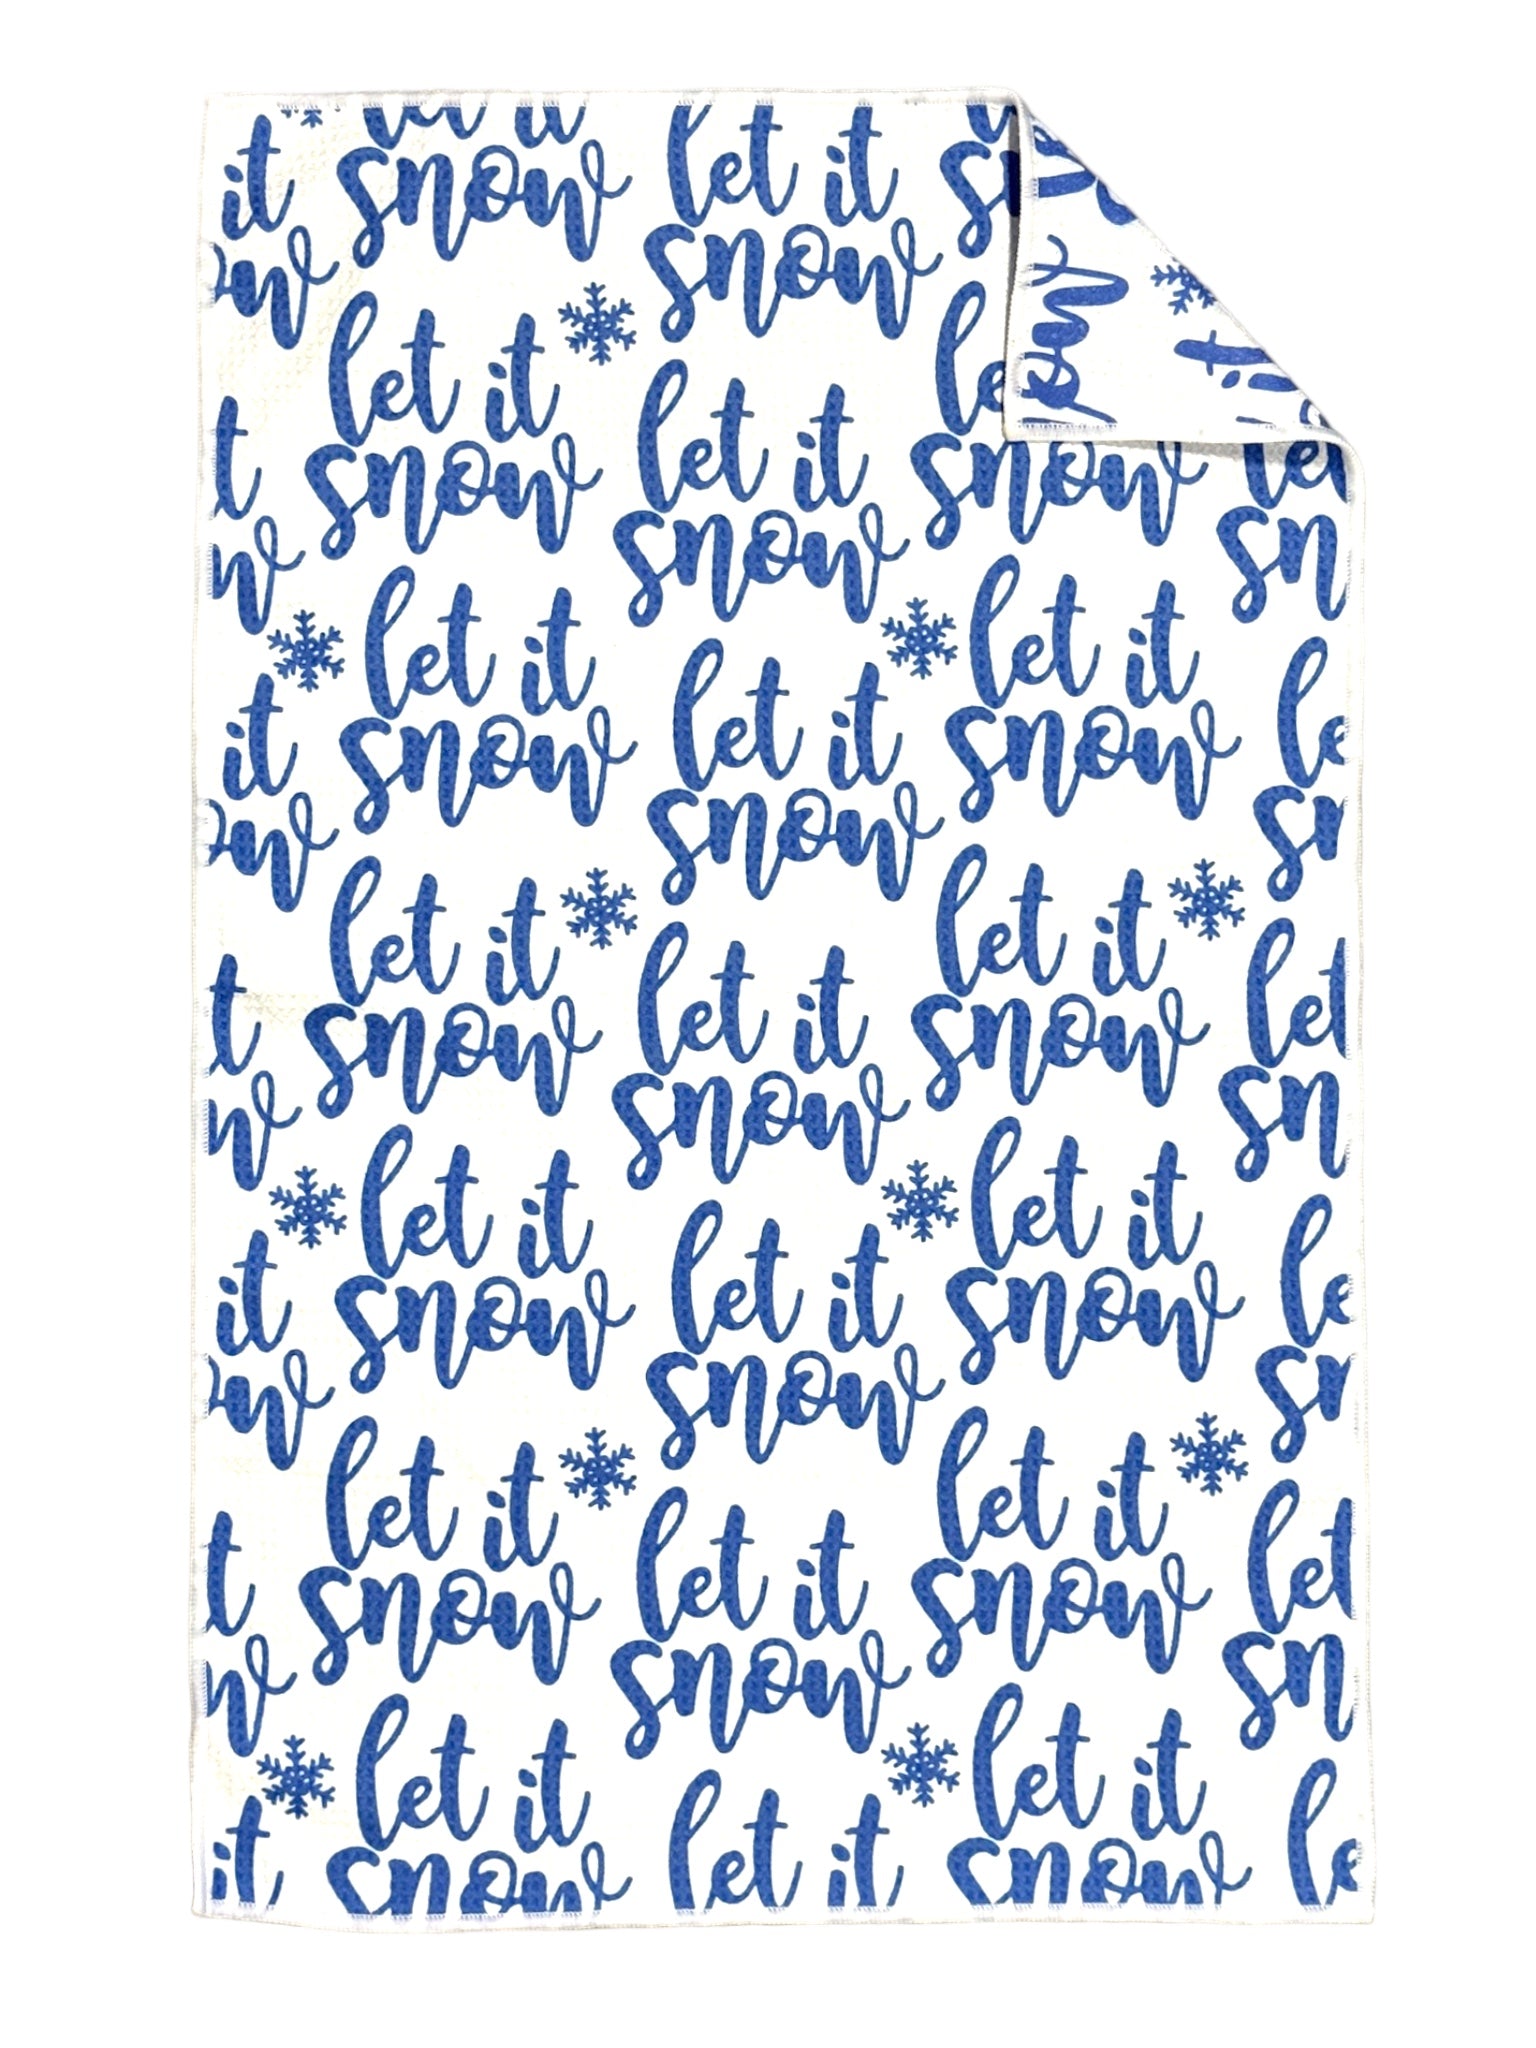 let it
snow
let it
snow
let it
snow
let it
snow
let it
snow
let it
snow
let it
snow
let it
snow
let it
snow
let it
snow
let it
snow
let it
snow
let it
snow
let it
snow
let it
snow
let it
snow
let it
snow
let it
snow
let it